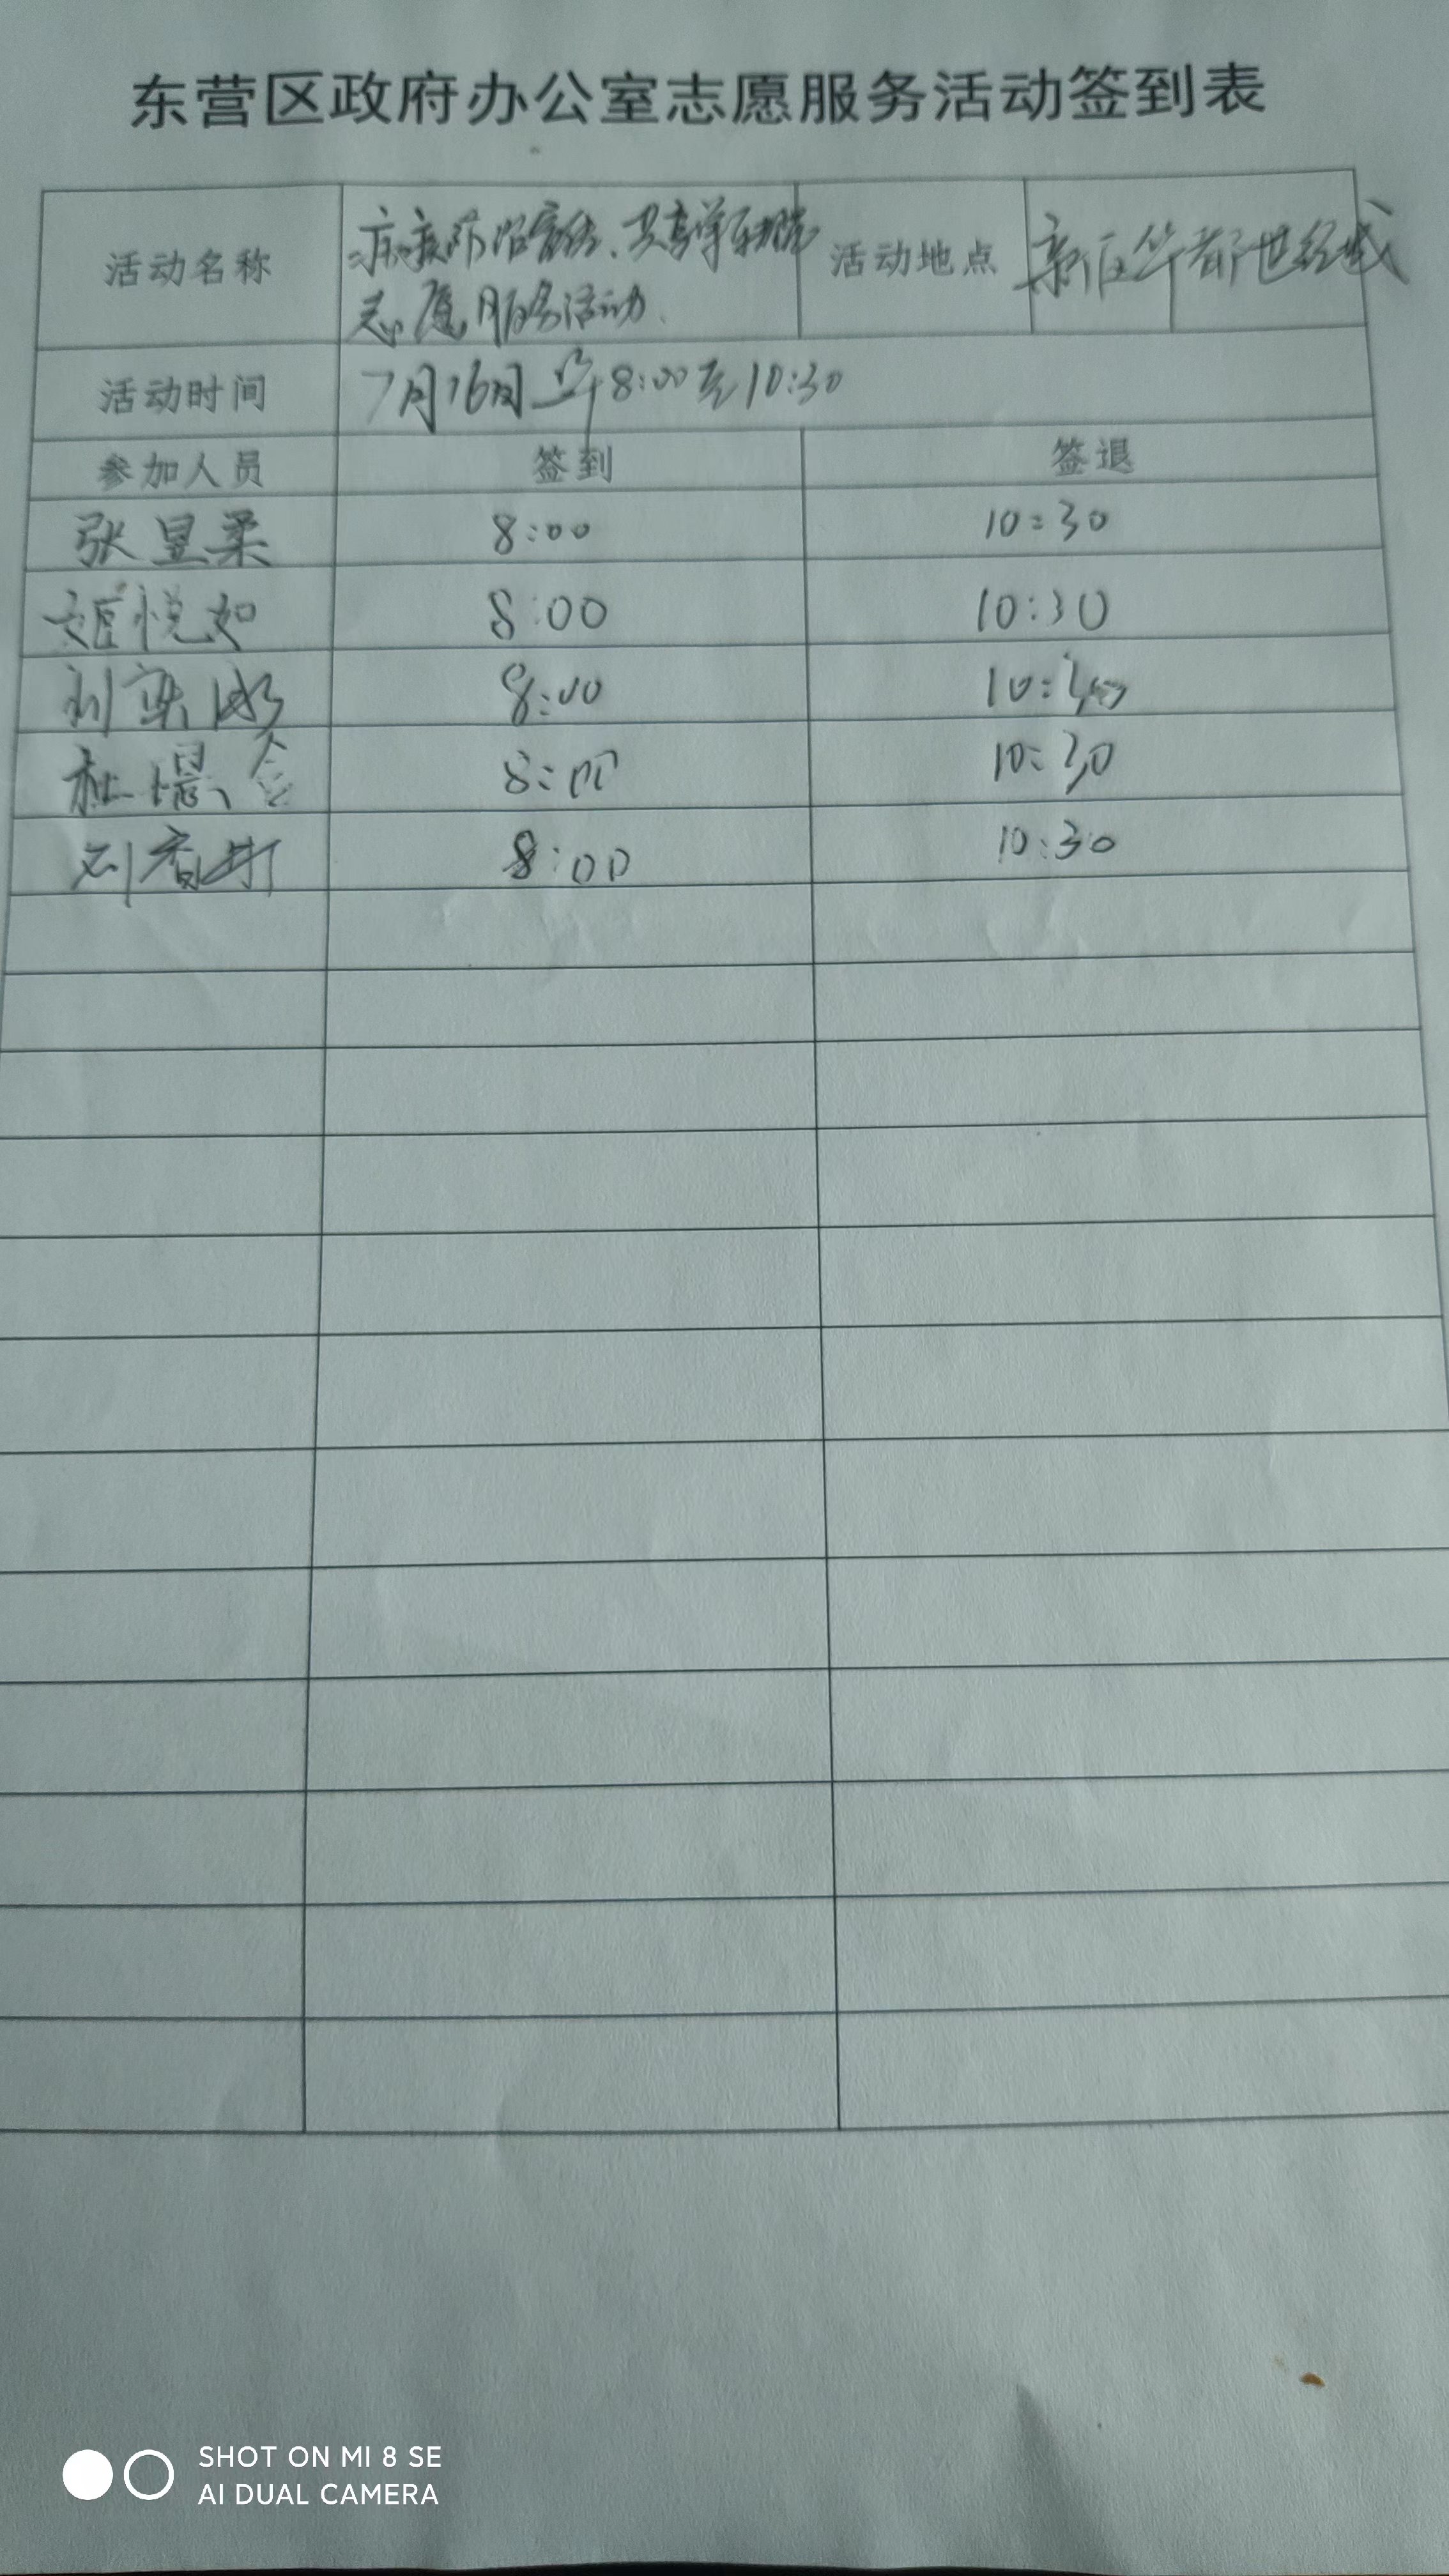 东营区政府办公室志愿服务活动签到表
活动名称 疾病防治宣传、共享
志愿服务活动
活动地点 新区华都世纪城
活动时间 7月16日上午8:00至10:30
参加人员 签到 签退
张昱柔 8:00 10:30
姬悦如 8:00 10:30
刘 8:00 10:30
杜 8:00 10:30
刘 8:00 10:30
SHOT ON MI 8 SE
AI DUAL CAMERA